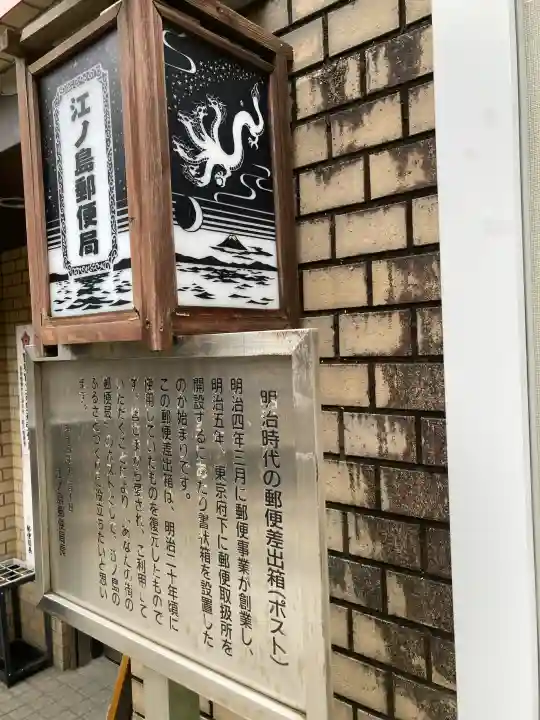 江ノ島郵便局
明治時代の郵便差出箱(ポスト)
明治四年三月に郵便事業が創業し、
明治五年、東京府下に郵便取扱所を
開設するにあたり書状箱を設置した
のが始まりです。
この郵便差出箱は、明治二十年頃に
使用していたものを復元したもので
す。
愛され、ご利用して
いただくことにより、「あなたの街の
郵便局」のポストとして、江ノ島の
ふるさとづくりに役立ちたいと思い
ます。
江ノ島郵便局長